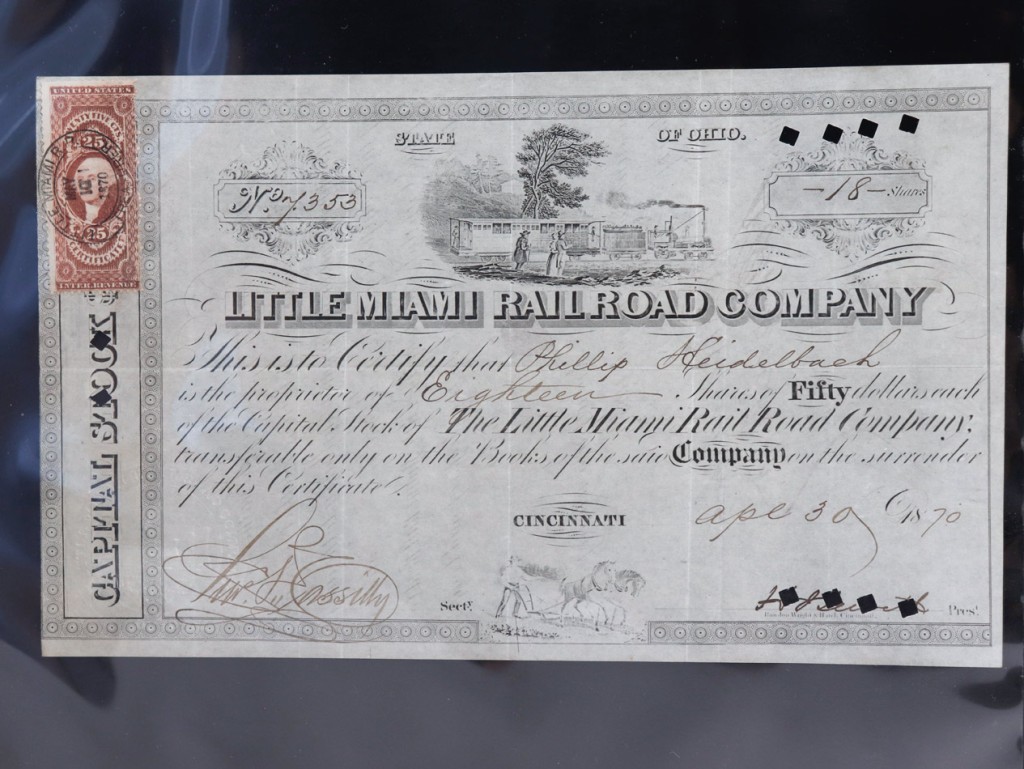 UNITED STATES
TWENTY FIVE CENTS
25
25
CERTIFICATE
INTER. REVENUE
1870
CAPITAL STOCK
STATE OF OHIO.
No. 7353
- 18 - Shares
LITTLE MIAMI RAILROAD COMPANY
This is to Certify that Phillip Heidelbach
is the proprietor of Eighteen Shares of Fifty dollars each
of the Capital Stock of The Little Miami Rail Road Company,
transferable only on the Books of the said Company on the surrender
of this Certificate.
CINCINNATI Apl 30 1870
Jno. Cassilly Secty. Prest.